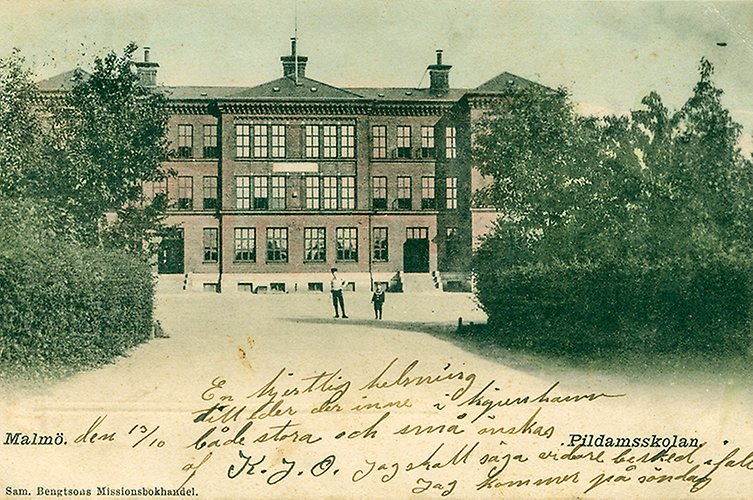 En hjertlig helsning
till Eder der inne i Kjøpenhavn
Malmö. den 13/10 både stora och små önskas Pildamsskolan.
af K. J. O. Jag skall säga vidare besked, ifall
Jag kommer på söndag
Sam. Bengtsons Missionsbokhandel.